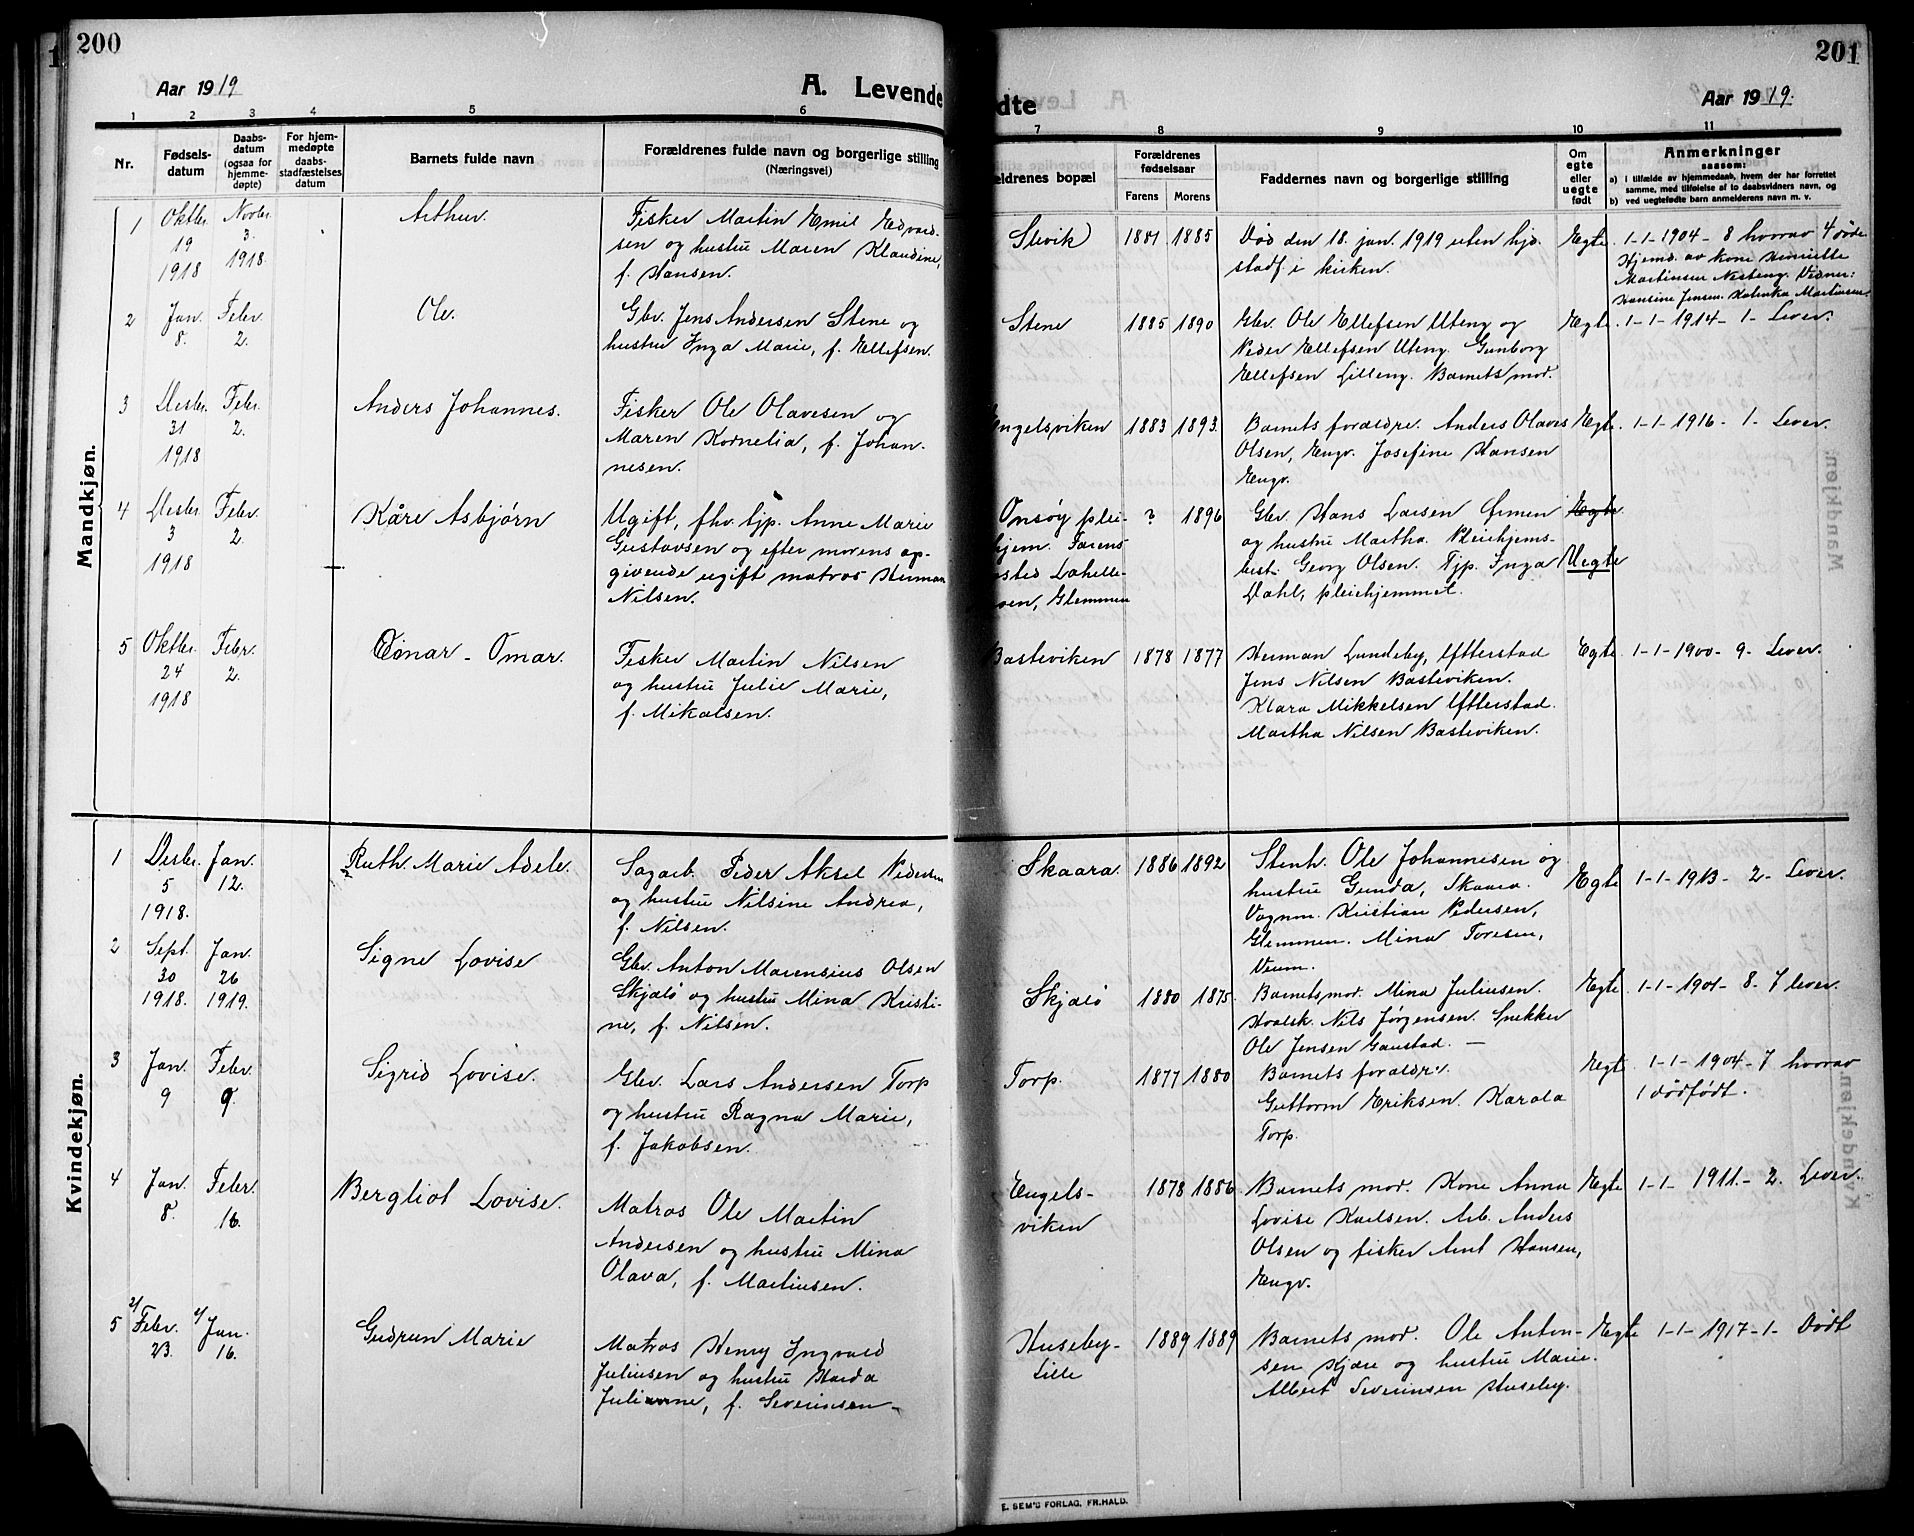 200
Aar 1919
A. Levende
1 2 3 4 5 6
Nr.
Fødsels-
datum
Daabs-
datum
(ogsaa for
hjemme-
døpte)
For hjem-
medøpte
daabs-
stadfæstelses
datum
Barnets fulde navn
Forældrenes fulde navn og borgerlige stilling
(Næringsvei)
Mandkjøn.
1
Oktbr.
19
1918
Novbr.
3.
1918.
Arthur.
Fisker Martin Emil Edvard-
sen og hustru Maren Klaudine,
f. Hansen.
2
Jan.
8.
Febr.
2.
Ole.
Gbr. Jens Andersen Stene og
hustru Inga Marie, f. Ellefsen.
3
Desbr.
31
1918
Febr.
2.
Anders Johannes.
Fisker Ole Olavesen og
Maren Kornelia, f. Johan-
nesen.
4
Desbr.
3
1918
Febr.
2.
Kåre Asbjørn
Ugift, fhv. tjp. Anne Marie
Gustavsen og efter morens op-
givende ugift matros Herman
Nilsen.
5
Oktbr.
24
1918
Febr.
2.
Einar - Omar.
Fisker Martin Nilsen
og hustru Julie Marie,
f. Mikalsen.
Kvindekjøn.
1
Desbr.
5
1918.
Jan.
12.
Ruth Marie Adele.
Sagarb. Peder Aksel Pedersen
og hustru Nilsine Andrea,
f. Nilsen.
2
Sept.
30
1918.
Jan.
26
1919.
Signe Lovise
Gbr. Anton Marensius Olsen
Skjælø og hustru Mina Kristi-
ne, f. Nilsen.
3
Jan.
9
Febr.
9.
Sigrid Lovise.
Gbr. Lars Andersen Torp
og hustru Ragna Marie,
f. Jakobsen.
4
Jan.
8.
Febr.
16.
Bergliot Lovise.
Matros Ole Martin
Andersen og hustru Mina
Olava, f. Martinsen.
5
2/ Febr.
23.
1/ Jan.
16.
Gudrun Marie
Matros Henry Ingvald
Juliusen og hustru Harda
Julianne, f. Severinsen-
201
dte
Aar 1919.
7 8 9 10 11
ldrenes bopæl
Forældrenes
fødselsaar
Farens Morens
Faddernes navn og borgerlige stilling
Om
egte
eller
uegte
født
Anmerkninger
saasom:
a) i tilfælde av hjemmedaab, hvem der har forrettet
samme, med tilføielse af to daabsvidners navn, og
b) ved uegtefødte barn anmelderens navn m. v.
Slevik 1881 1885
Død den 18. jan. 1919 uten hjd.
stadf. i kirken.
Egte.
1-1-1904- 8 hvorav 4 døde
Hjemd. av kone Henriette
Martinsen Nesteng. Vidner:
Hansine Jensen. Malenka Martinsen.
Stene 1885 1890
Gbr. Ole Ellefsen Uteng og
Peder Ellefsen Uteng. Gunborg
Ellefsen Lilleng. Barnets mod.
Egte.
1-1-1914- 1- Lever.
Engelsviken 1883 1893.
Barnets forældre. Anders Olaves
Olsen, Engv. Josefine Hansen
Engv.
Egte.
1-1-1916- 1- Lever.
Onsøy plei-
hjem. Farens
sted Lahelle-
Glemmen
? 1896
Gbr. Hans Larsen Ørmen
og hustru Martha. Pleiehjems-
best. Georg Olsen. Tjp. Inga
Dahl, pleiehjemmet.
Egte.
Uegte
Basteviken 1878 1877
Herman Lundeby, Efterstad
Jens Nilsen Basteviken.
Klara Mikkelsen Efterstad.
Martha Nilsen Basteviken.
Egte.
1-1-1900- 9- Lever.
Skaara. 1886 1892
Stenh. Ole Johannesen og
hustru Gunda, Skaara.
Vognm. Kristian Pedersen,
Glemmen. Mina Toresen,
Veum.
Egte
1-1-1913- 2- Lever.
Skjælø 1880 1875.
Barnets mod. Mina Juliusen.
Hvalsk. Nils Jørgensen. Snekker
Ole Jensen Gaustad. —
Egte
1-1-1901- 8- 7 lever.
Torp. 1877 1880
Barnets forældre.
Guttorm Eriksen. Karola
Torp.
Egte
1-1-1904-7 hvorav
1 dødfødt.
Engels-
viken
1878 1886
Barnets mod. Kone Anna
Lovise Karlsen. Arb. Anders
Olsen og fisker Arnt Hansen,
Engv.
Egte
1-1-1911.- 2. Lever.
Huseby-
Lille
1889 1889
Barnets mod. Ole Anton-
sen Kjære og hustru Marie.
Albert Severinsen Huseby.
Egte
1-1-1917-1- Dødt
Mandkjøn.
Kvindekjøn.
E. SEM'S FORLAG, FR.HALD.